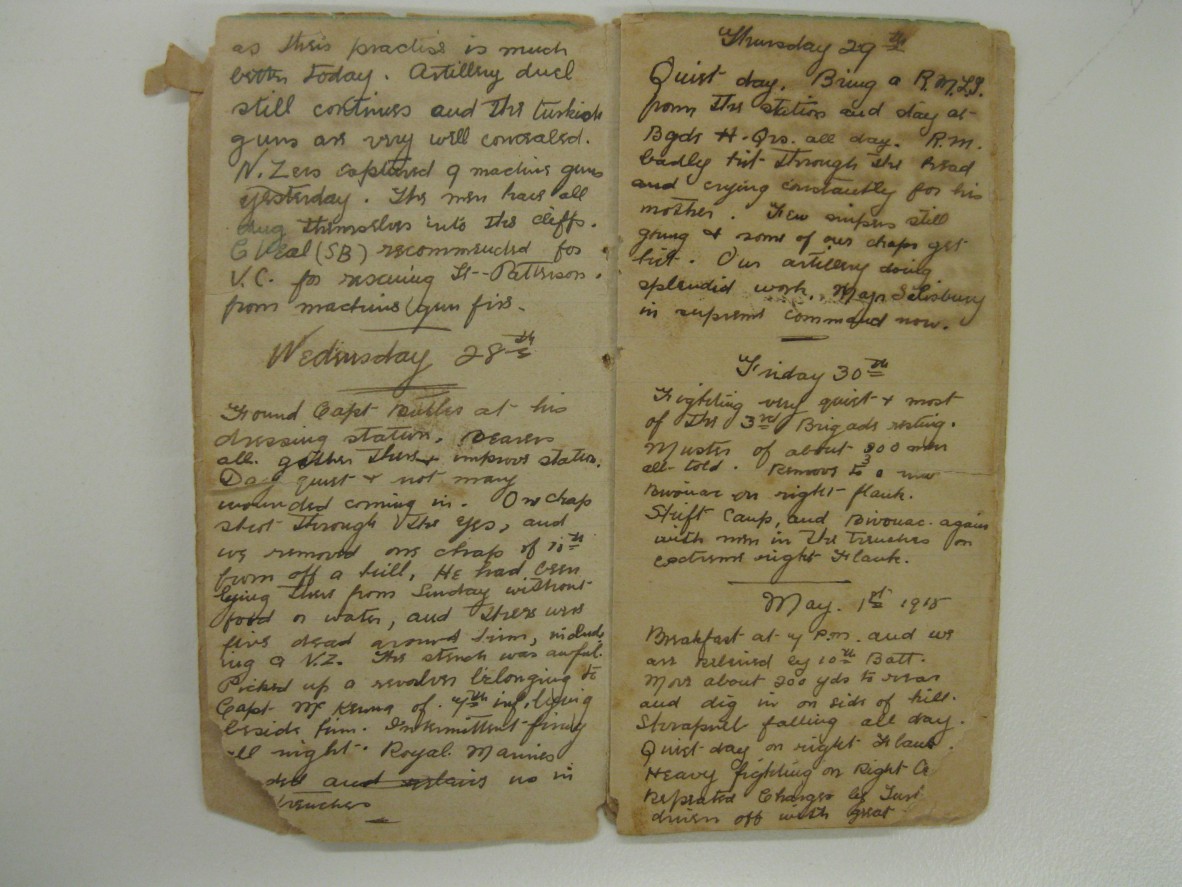 as their practise is much
better today. Artillery duel
still continues and the turkish
guns are very well concealed.
N. Zers captured 9 machine guns
yesterday. The men have all
dug themselves into the cliffs.
C Veal (SB) recommended for
V.C. for rescuing Lt-Patterson.
from machine gun fire.
Wednesday 28th
Found Capt Butler at his
dressing station. Bearers
all gather there & improve station.
Day quiet & not many
wounded coming in. One chap
shot through the eyes, and
we removed one chap of 10th
from off a hill. He had been
lying there from Sunday without
food or water, and there were
five dead around him, includ
ing a N.Z. The stench was awful.
Picked up a revolver belonging to
Capt of 7th inf, lying
beside him. Intermittent firing
all night. Royal Marines
and us in
trenches
Thursday 29th
Quiet day. Bring a R.M.L.I.
from the station and stay at
Bgde H-Qrs. all day. R.M.
badly hit through the head
and crying constantly for his
mother. Few snipers still
going & some of our chaps get
hit. Our artillery doing
splendid work. Major Salisbury
in supreme command now.
Friday 30th
Fighting very quiet & most
of the 3rd Brigade resting.
Muster of about 300 men
all-told. Remove to a new
Bivouac on right flank.
Shift Camp, and Bivouac again
with men in the trenches on
extreme right Flank.
May. 1st 1915
Breakfast at 4 P.m. and we
are relieved by 10th Batt.
Move about 200 yds to rear
and dig in on side of hill.
Shrapnel falling all day.
Quiet day on right Flank.
Heavy fighting on Right Ce
Repeated Charges by Turk
driven off with great